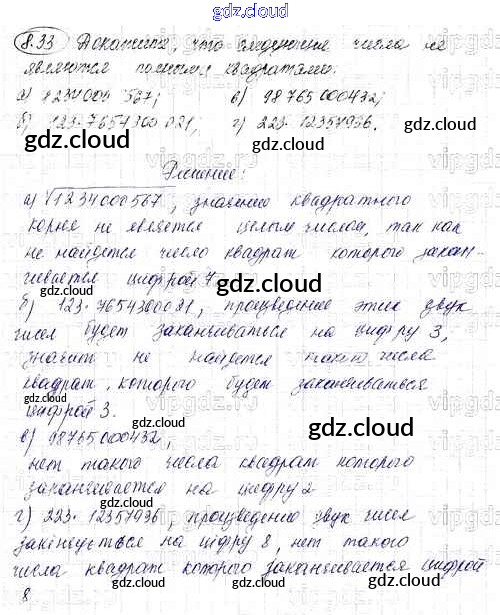 gdz.cloud
8.33 Докажите, что следующие числа не
являются полными квадратами:
а) 1234000 567; в) 98765000432;
б) 123·7654300021; г) 223·12357936.
gdz.cloud gdz.cloud
Решение:
а) √1234000567, значение квадратного
корня не является целым числом, так как
не найдется число квадрат которого закан-
чивается цифрой 7 gdz.cloud
б) 123·7654300021, произведение этих двух
чисел будет заканчиваться на цифру 3,
значит не найдется такого числа
квадрат, которого будет заканчиваться
цифрой 3. gdz.cloud
в) 98765000432, gdz.cloud
нет такого числа квадрат которого
заканчивается на цифру 2
г) 223·12357936, произведение двух чисел
закінчується на цифру 8, нет такого
числа квадрат которого заканчивается цифрой
8 gdz.cloud gdz.cloud